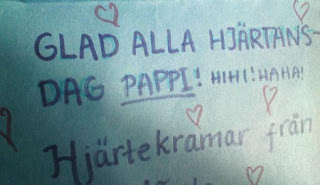 GLAD ALLA HJÄRTANS-
DAG PAPPI! HIHI! HAHA!
Hjärtekramar från